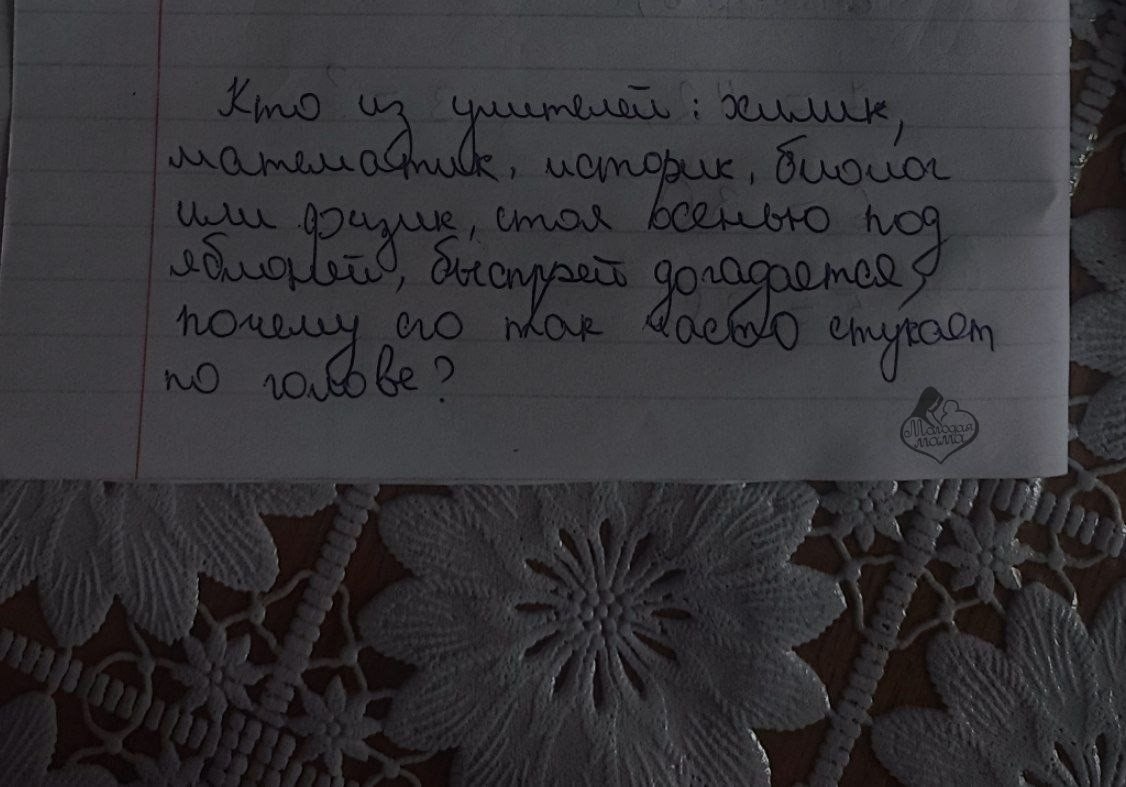 Кто из учителей: химик,
математик, историк, биолог
или физик, стоя осенью под
яблоней, быстрей догадается,
почему его так часто стукает
по голове?
Молодая
мама